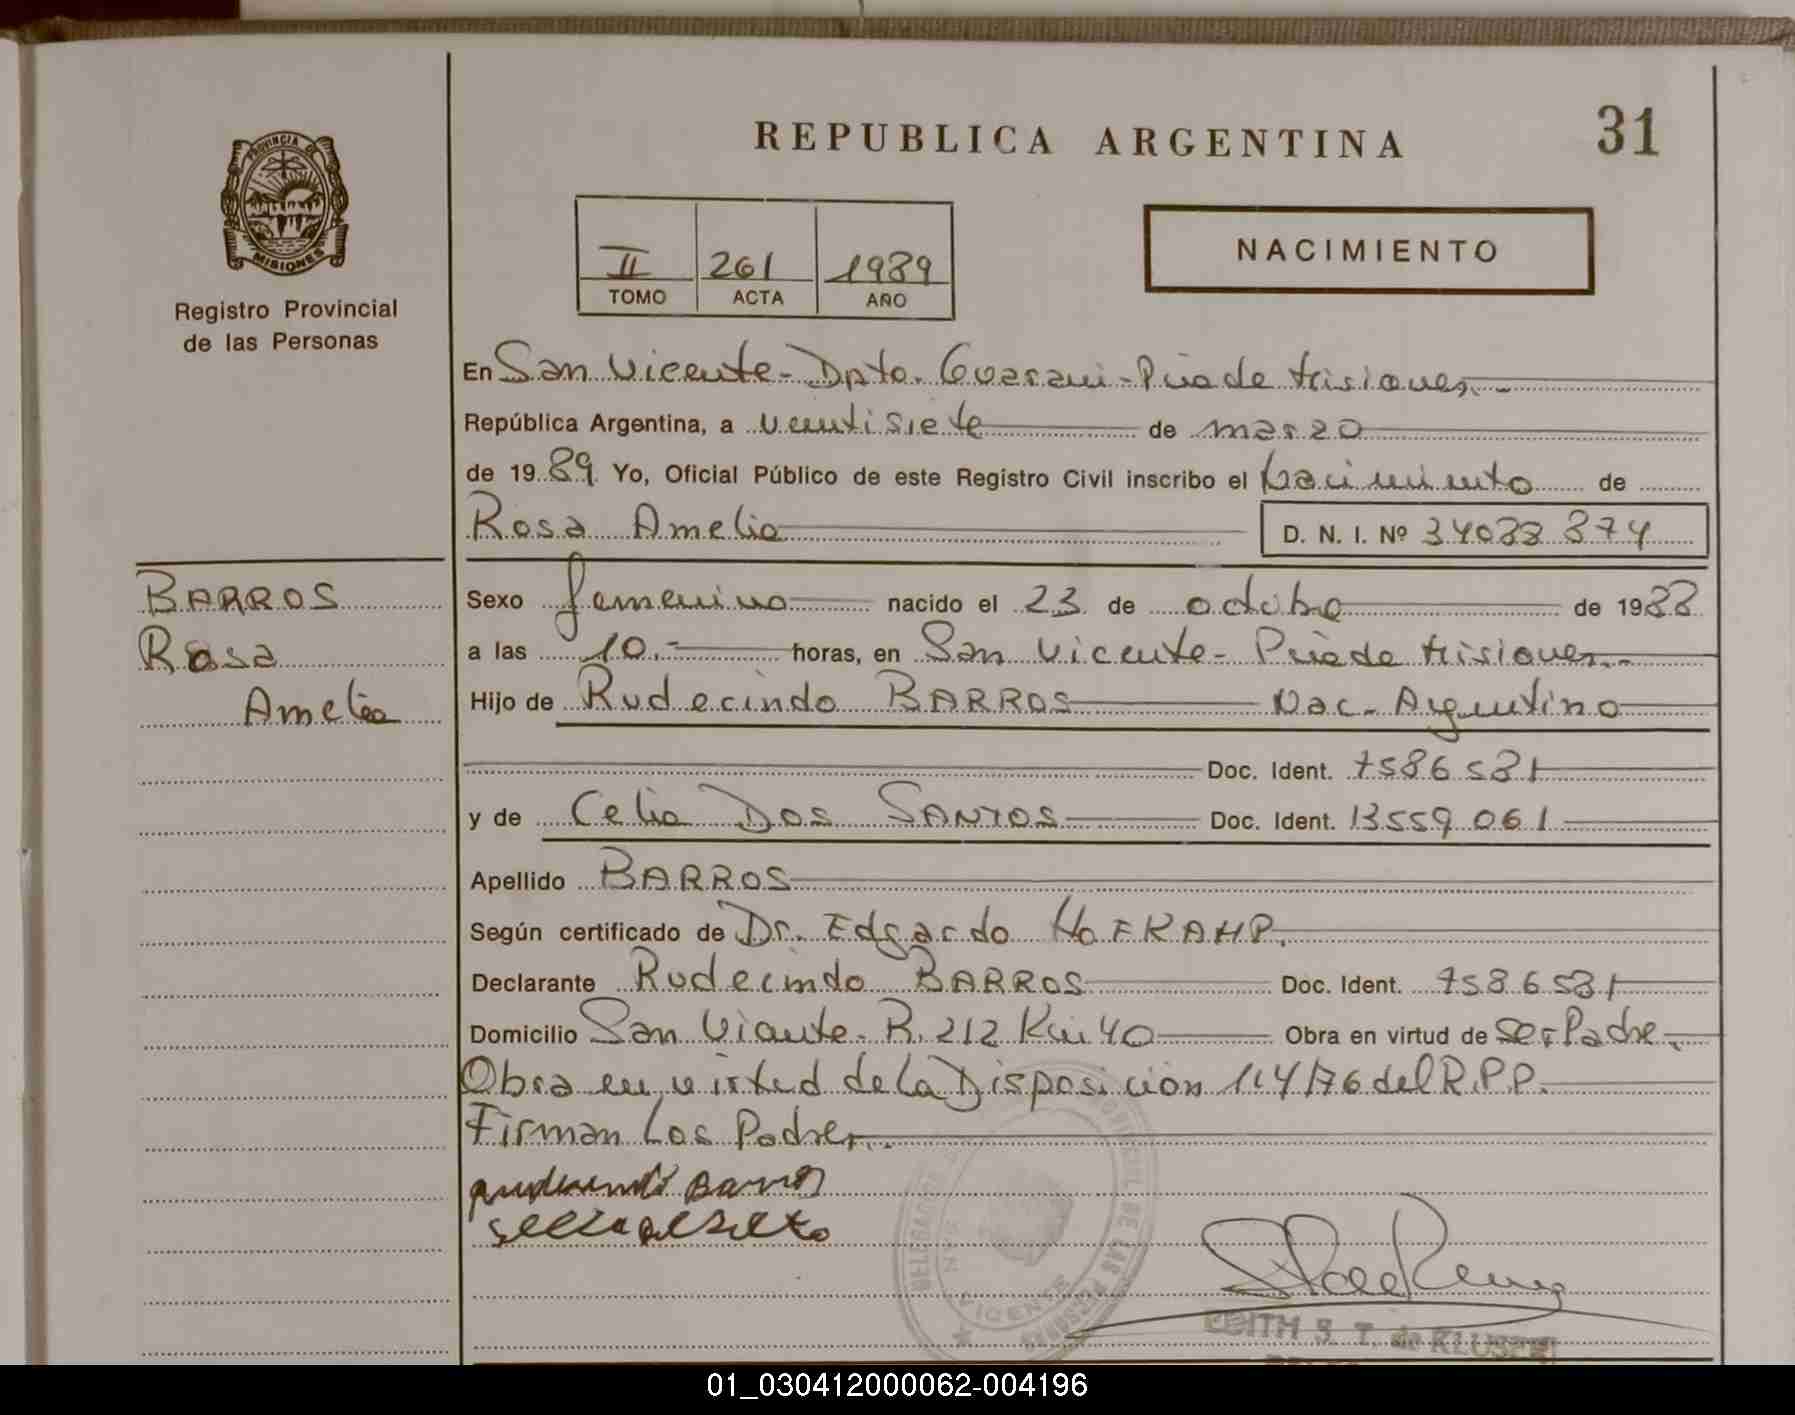 REPUBLICA ARGENTINA
31
PROVINCIA DE
MISIONES
Registro Provincial
de las Personas
II 261 1989
TOMO ACTA AÑO
NACIMIENTO
En San Vicente - Dpto. Guarani - Pcia de Misiones.-
República Argentina, a veintisiete de marzo
de 1989 Yo, Oficial Público de este Registro Civil inscribo el Nacimiento de
Rosa Amelia D. N. I. Nº 34088874
BARROS
Rosa
Amelia
Sexo femenino nacido el 23 de octubre de 1988
a las 10.- horas, en San Vicente - Pcia de Misiones.-
Hijo de Rudecindo BARROS Nac. Argentino
Doc. Ident. 7586581
y de Celia DOS SANTOS Doc. Ident. 13559061
Apellido BARROS
Según certificado de Dr. Edgardo
Declarante Rudecindo BARROS Doc. Ident. 7586581
Domicilio San Vicente - R. 212 Km 40 Obra en virtud de Ser Padre.-
Obra en virtud de la Disposicion 114/76 del R.P.P.
Firman Los Padres.-
Barros
VICENTE
EDITH S. T. de
01_030412000062-004196